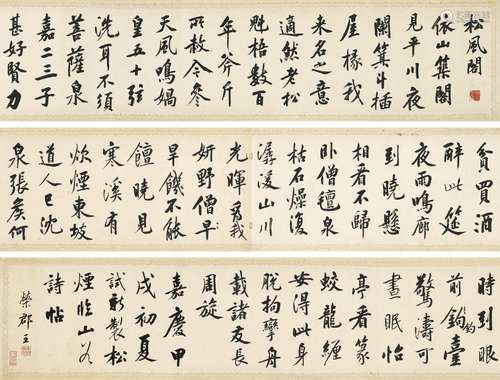 松風閣
依山築閣
見平川夜
闌箕斗插
屋椽我
來名之意
適然老松
魁梧數百
年斧斤
所赦令參
天風鳴媧
皇五十弦
洗耳不須
菩薩泉
嘉二三子
甚好賢力
貧買酒
醉此筵
夜雨鳴廊
到曉懸
相看不歸
臥僧氈泉
枯石燥復
潺湲山川
光暉為我
妍野僧早
旱饑不能
饘曉見
寒溪有
炊煙東坡
道人已沈
泉張侯何
時到眼
前釣臺
驚濤可
晝眠怡
亭看篆
蛟龍纏
安得此身
脫拘攣舟
載諸友長
周旋
嘉慶甲
戌初夏
試新製松
煙臨山谷
詩帖
榮郡王